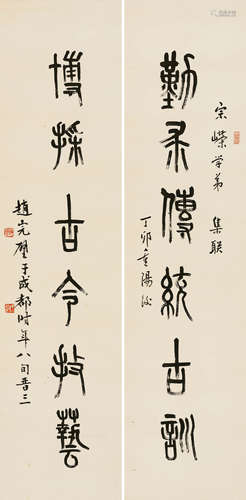 宗嶸学弟 集联
勤求傳統古訓
丁卯重陽後
博採古今技藝
趙完璧于成都时年八旬晋三